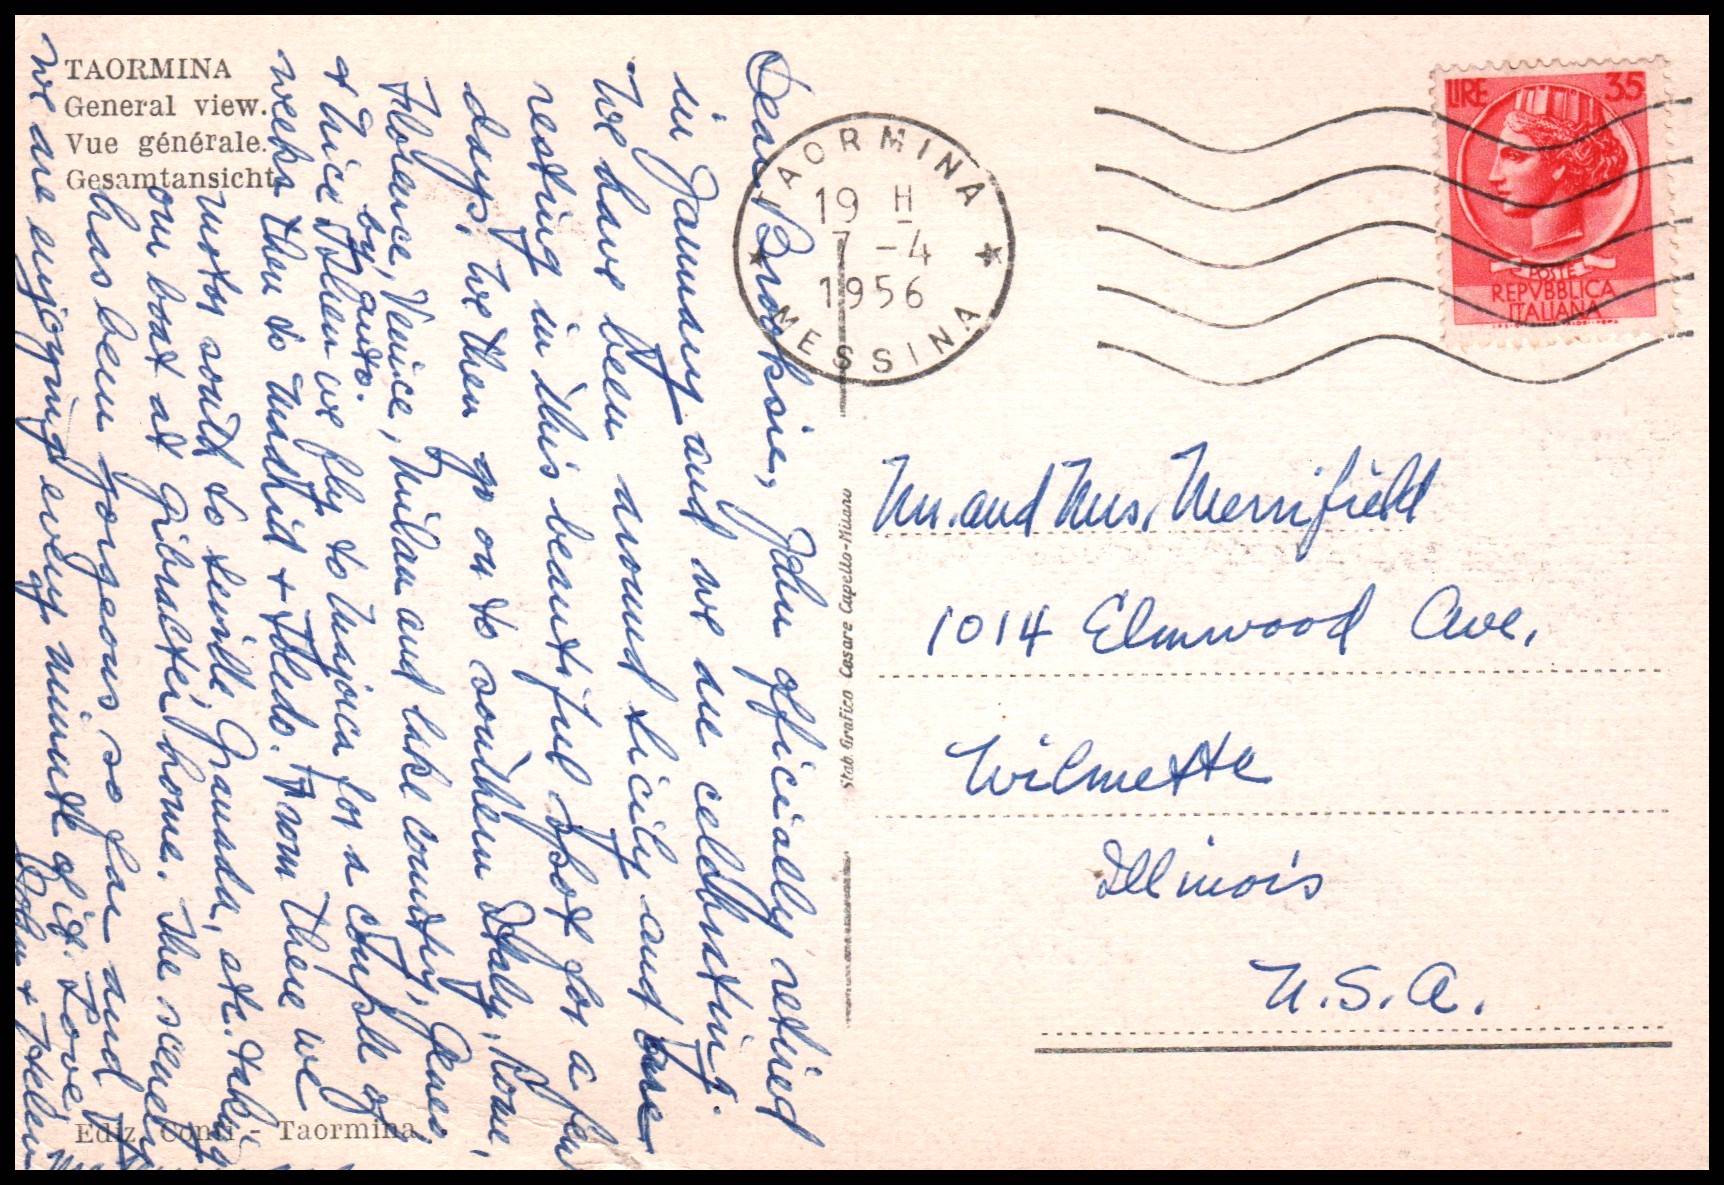 TAORMINA
General view.
Vue générale.
Gesamtansicht
Dear Brooksie, John officially retired
in January and we are celebrating.
We have been around Sicily and are
resting in this beautiful spot for a few
days. We then go on to southern Italy, Rome,
Florence, Venice, Milan and lake country, Genoa
& Nice by auto. Then we fly to Majorca for a couple of
weeks then to Madrid & Toledo. From there we
motor south to Seville, Granada, etc. taking
our boat at Gibralter home. The scenery
has been gorgeous so far and
we are enjoying every minute of it. Love,
John & Helen
Ediz. Conti - Taormina
Stab. Grafico Cesare Capello-Milano
TAORMINA
19 H
7 -4
1956
MESSINA
LIRE 35
POSTE
REPVBBLICA
ITALIANA
Mr. and Mrs. Merrifield
1014 Elmwood Ave,
Wilmette
Illinois
U.S.A.